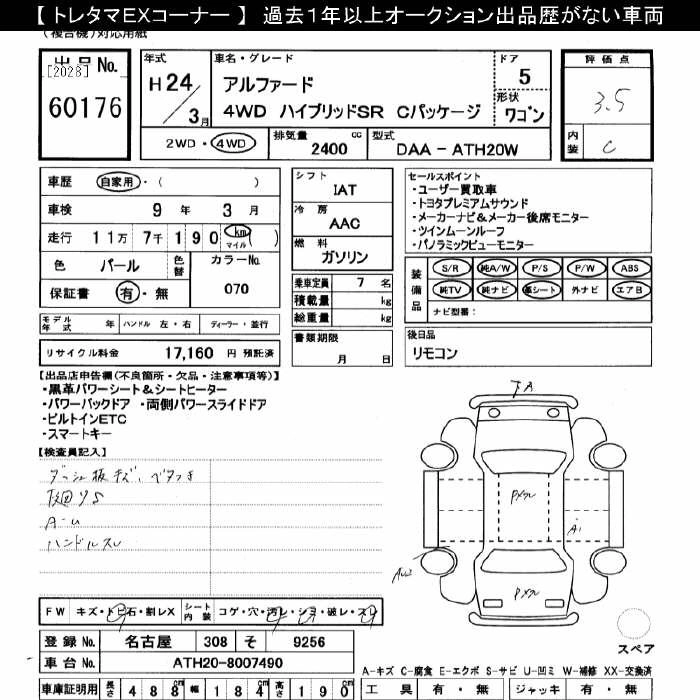 【 トレタマEXコーナー 】 過去1年以上オークション出品歴がない車両
(複合機)対応用紙
出品No.
[2028]
60176
年式
H24/3月
車名・グレード
アルファード
4WD ハイブリッドSR Cパッケージ
ドア
5
形状
ワゴン
2WD・4WD
排気量 cc
2400
型式
DAA-ATH20W
評価点
3.5
内装
C
車歴 自家用・( )
車検 9年 3月
走行 11万7千190 km マイル ( )
色 パール 色替
カラーNo.
070
保証書 有・無
シフト
IAT
冷房
AAC
燃料
ガソリン
乗車定員 7名
積載量 kg
総重量 kg
セールスポイント
・ユーザー買取車
・トヨタプレミアムサウンド
・メーカーナビ&メーカー後席モニター
・ツインムーンルーフ
・パノラミックビューモニター
装備品
S/R 純A/W P/S P/W ABS
純TV 純ナビ 革シート 外ナビ エアB
ナビ型番:
モデル年式 年 ハンドル 左・右 ディーラー・並行
リサイクル料金 17,160 円 預託済
書類期限
月 日
後日品
リモコン
【出品店申告欄(不良箇所・欠品・注意事項等)】
・黒革パワーシート&シートヒーター
・パワーバックドア ・両側パワースライドドア
・ビルトインETC
・スマートキー
【検査員記入】
ダッシュ板キズ、ベタつき
A-U
ハンドルスレ
A
A1
FW キズ・トビ石・割レX
シート内装 コゲ・穴・汚レ・シミ・破レ・スレ
登録No. 名古屋 308 そ 9256
車台No. ATH20-8007490
車庫証明用 長さ 488cm 幅 184cm 高さ 190cm
スペア
A-キズ C-腐食 E-エクボ S-サビ U-凹ミ W-補修 XX-交換済
工具 有・無 ジャッキ 有・無